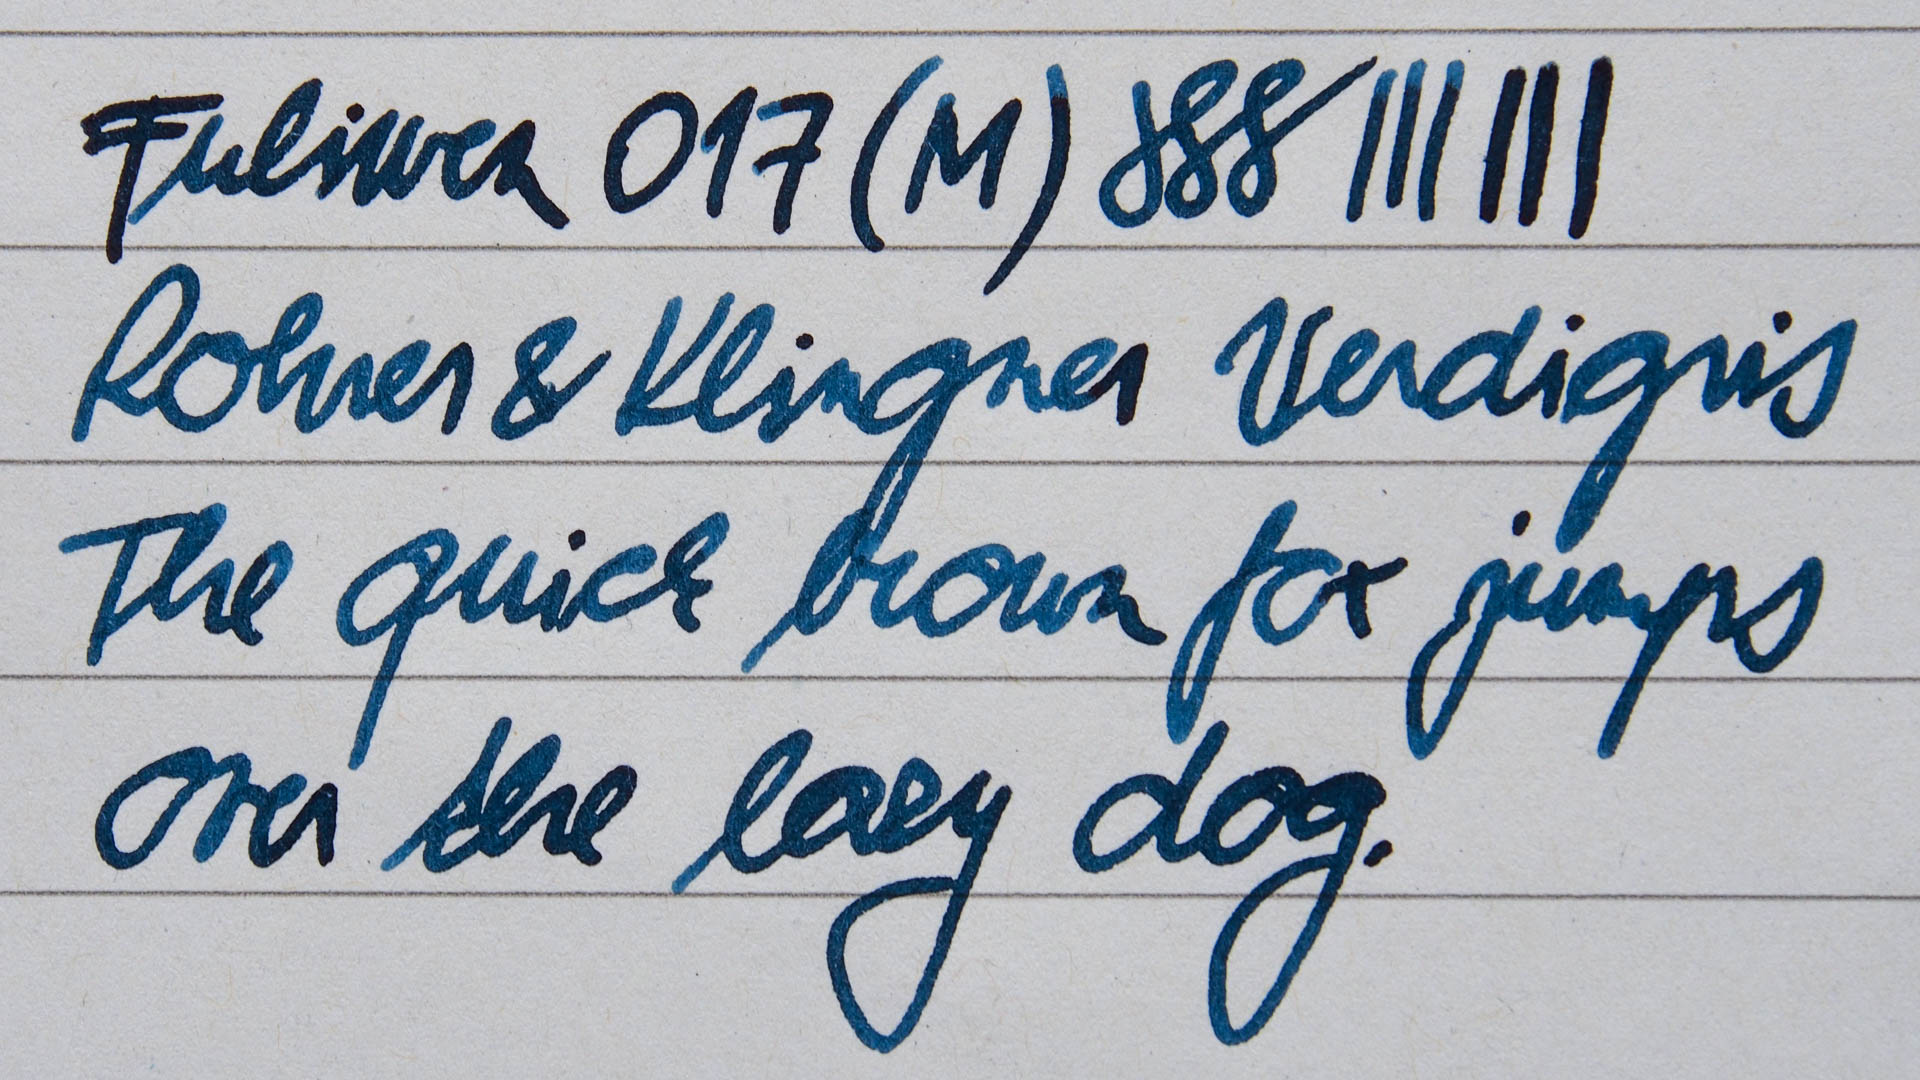 Fuliwen 017 (M)
Rohrer & Klingner Verdigris
The quick brown fox jumps
over the lazy dog.